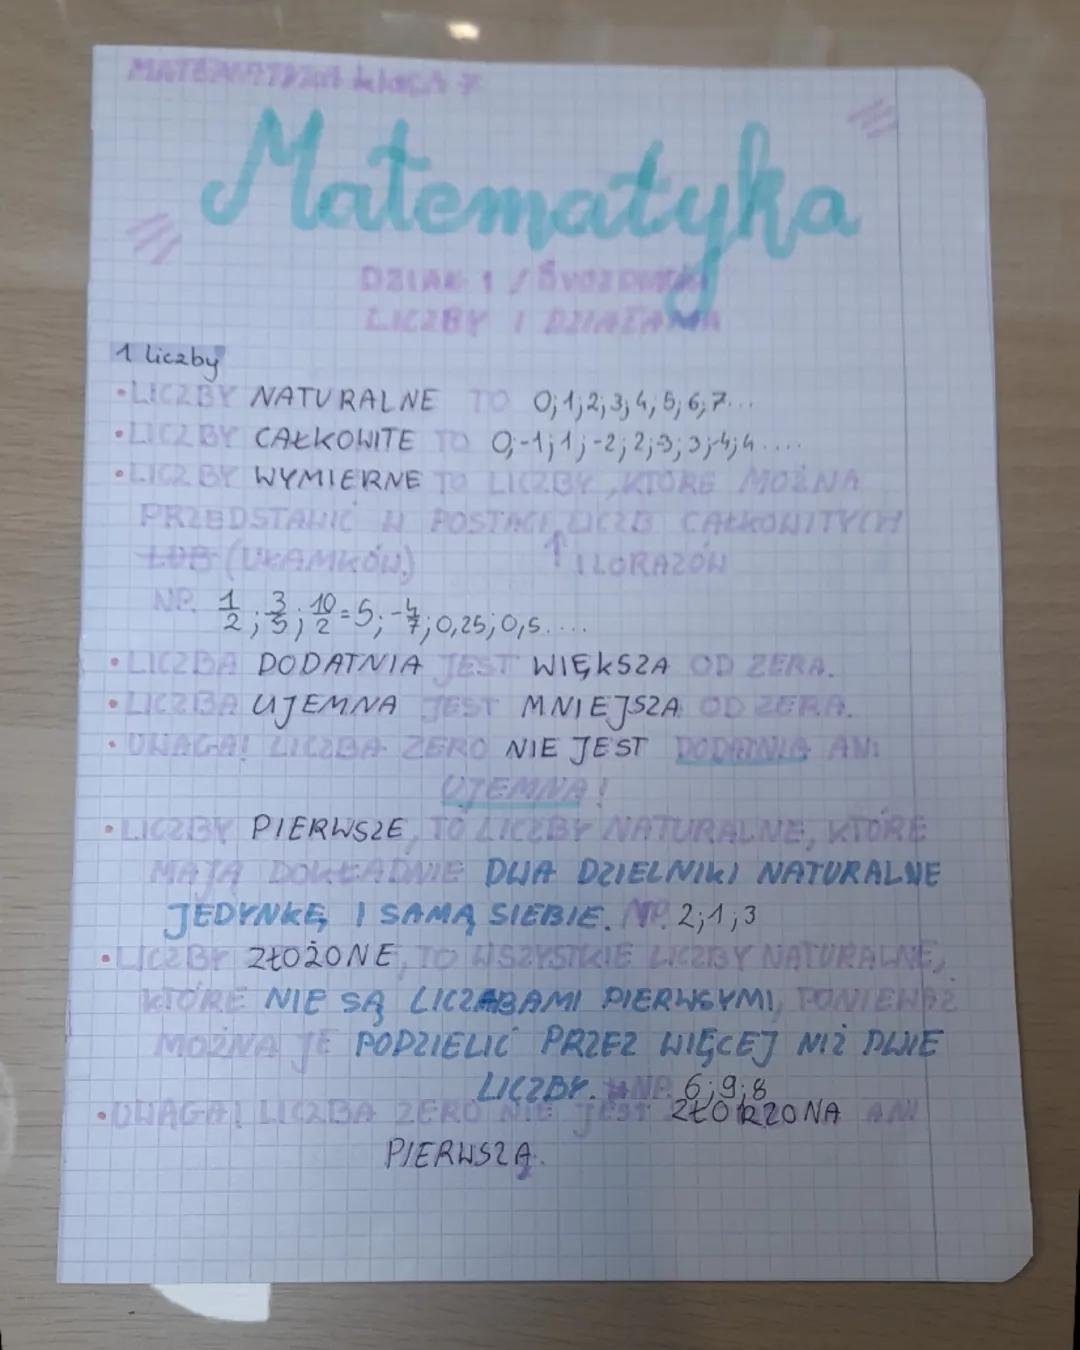 MATEMATYKA klasa 7
Matematyka
DZIAŁ 1 /
LICZBY I DZIAŁANIA
1 liczby
•LICZBY NATURALNE TO 0;1;2;3;4;5;6;7...
•LICZBY CAŁKOWITE TO 0;-1;1;-2;2;-3;3;-4;4....
•LICZBY WYMIERNE TO LICZBY, KTÓRE MOŻNA
PRZEDSTAWIĆ W POSTACI LICZB CAŁKOWITYCH
LUB (UŁAMKÓW) ↑ ILORAZÓW
NP. 1/2; 3/5; 10/2=5; -4/7; 0,25; 0,5....
•LICZBA DODATNIA JEST WIĘKSZA OD ZERA.
•LICZBA UJEMNA JEST MNIEJSZA OD ZERA.
•UWAGA! LICZBA ZERO NIE JEST DODATNIA ANI
UJEMNA!
•LICZBY PIERWSZE, TO LICZBY NATURALNE, KTÓRE
MAJĄ DOKŁADNIE DWA DZIELNIKI NATURALNE
JEDYNKĘ I SAMĄ SIEBIE. NP. 2;1;3
•LICZBY ZŁOŻONE, TO WSZYSTKIE LICZBY NATURALNE,
KTÓRE NIE SĄ LICZABAMI PIERWSYMI, PONIEWAŻ
MOŻNA JE PODZIELIĆ PRZEZ WIĘCEJ NIŻ DWIE
LICZBY. NP. 6;9;8
•UWAGA! LICZBA ZERO NIE JEST ZŁORZONA ANI
PIERWSZĄ.